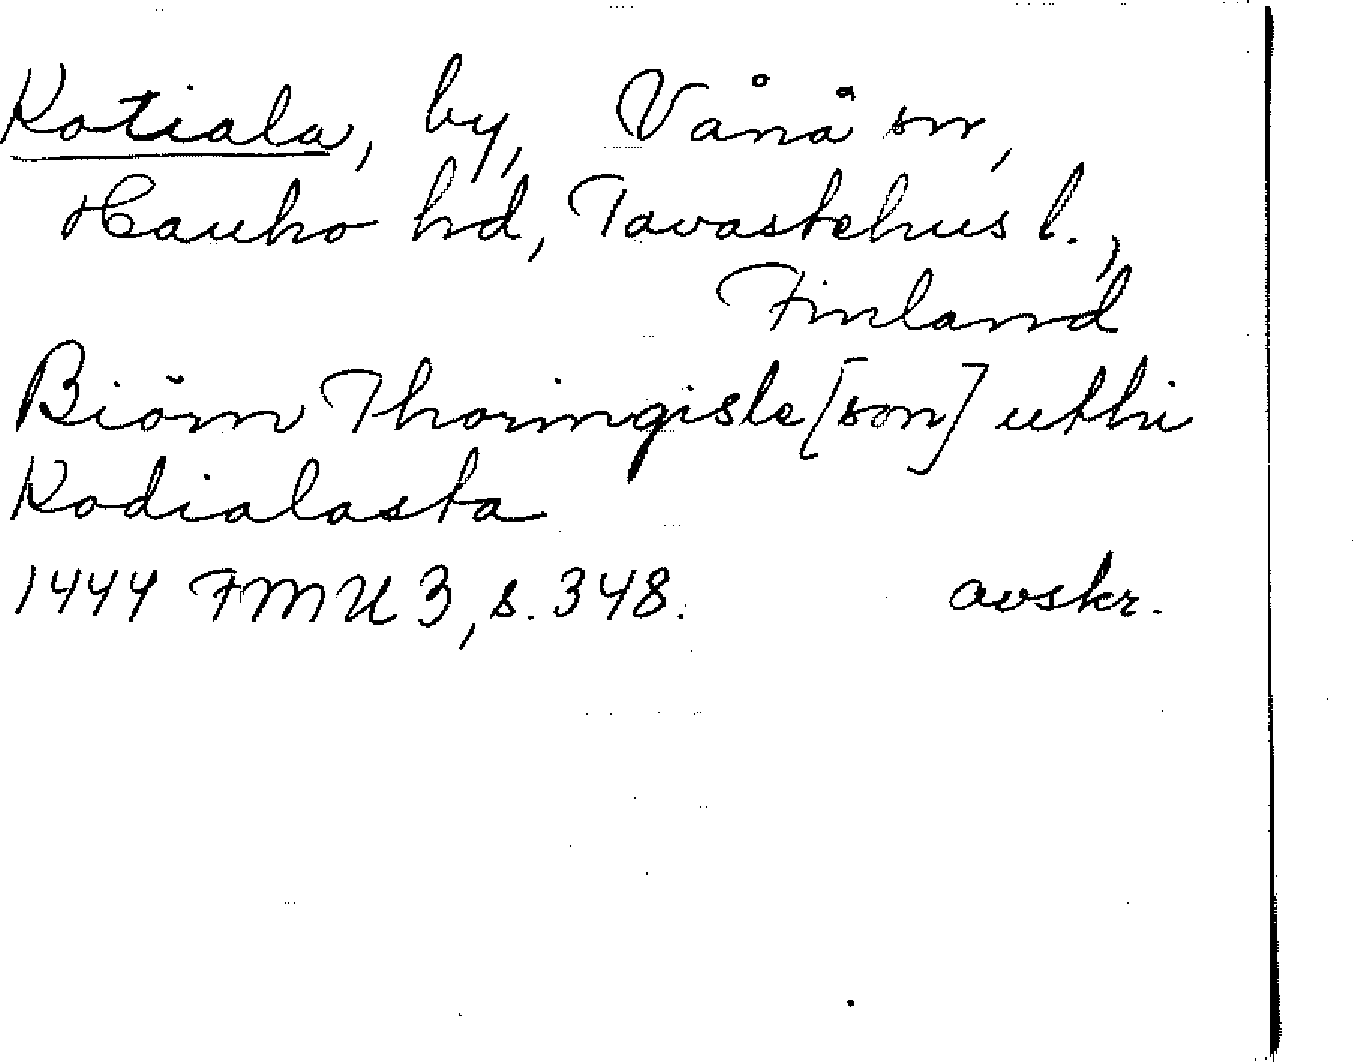 Kotiala, by, Vånå sn,
Hauho hd, Tavastehus l.,
Finland
Biörn Thoringisle[son] uthi
Kodialasta
1444 FMU 3, s. 348. avskr.